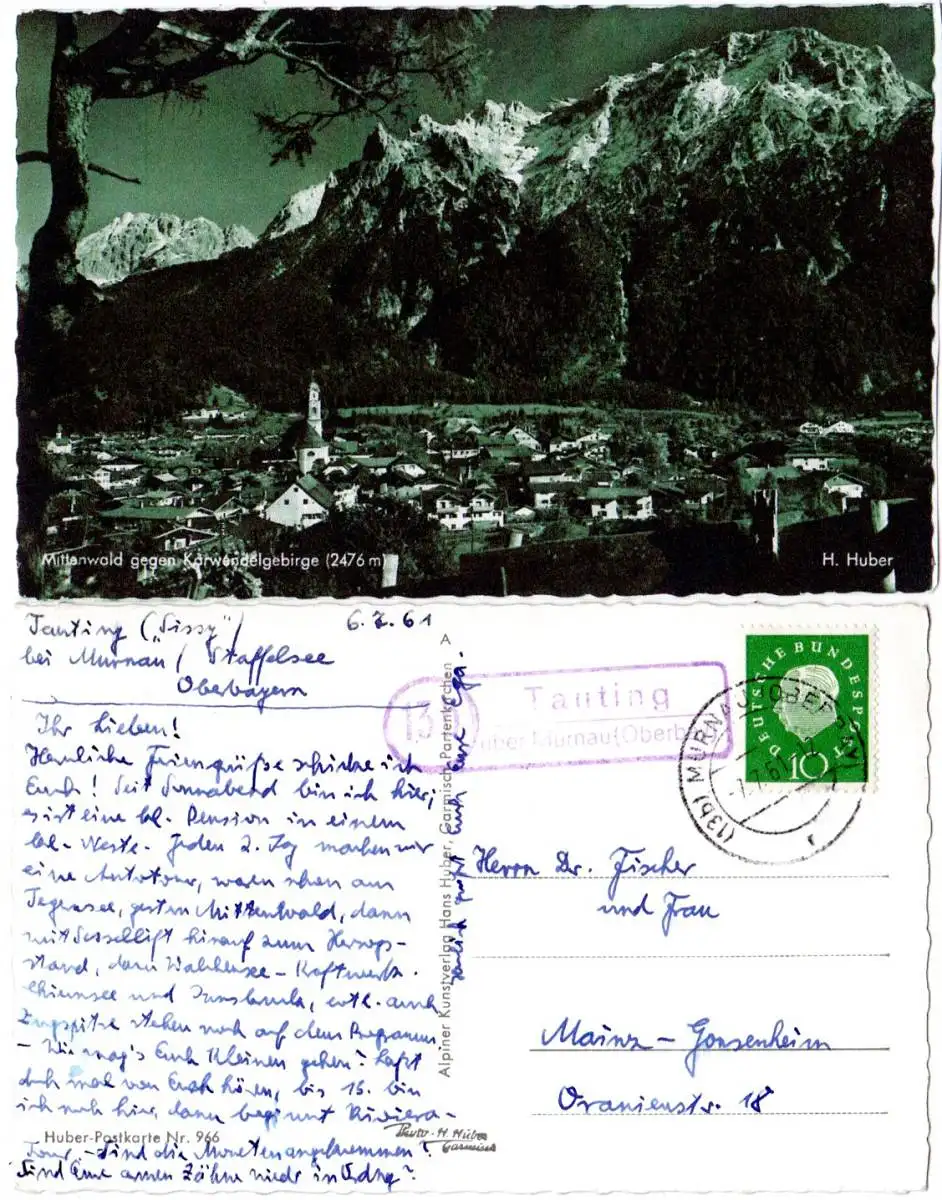 Mittenwald gegen Karwendelgebirge (2476 m)
H. Huber
Tauting ("Sissy")
6.7.61
bei Murnau / Staffelsee
Oberbayern
Ihr Lieben!
Herzliche Feriengrüße schicke ich
Euch! Seit Sonnabend bin ich hier,
es ist eine kl. Pension in einem
kl. Neste. Jeden 2. Tag machen wir
eine Autotour, waren schon am
Tegernsee, gestern Mittenwald, dann
mit Sessellift hinauf zum Herzog-
stand, dann Walchensee - Kraftwerk.
Chiemsee und Innsbruck, evtl. auch
Zugspitze stehen noch auf dem Programm
- Wie mag's Euch Kleinen gehen? Laßt
doch mal von Euch hören, bis 15. bin
ich noch hier, dann beginnt Riviera-
Tour. - Sind die Moneten angekommen?
Sind Eure armen Zähne wieder in Ordng?
Herzlich grüßt Euch Eure
Huber-Postkarte Nr. 966
Photo - H. Huber
Garmisch
A
Alpiner Kunstverlag Hans Huber, Garmisch-Partenkirchen
13
Tauting
über Murnau (Oberb)
(13b) MURNAU (OBERBAY)
-7.7.61
DEUTSCHE BUNDESPOST
10
Herrn Dr. Fischer
und Frau
Mainz - Gonsenheim
Oranienstr. 18